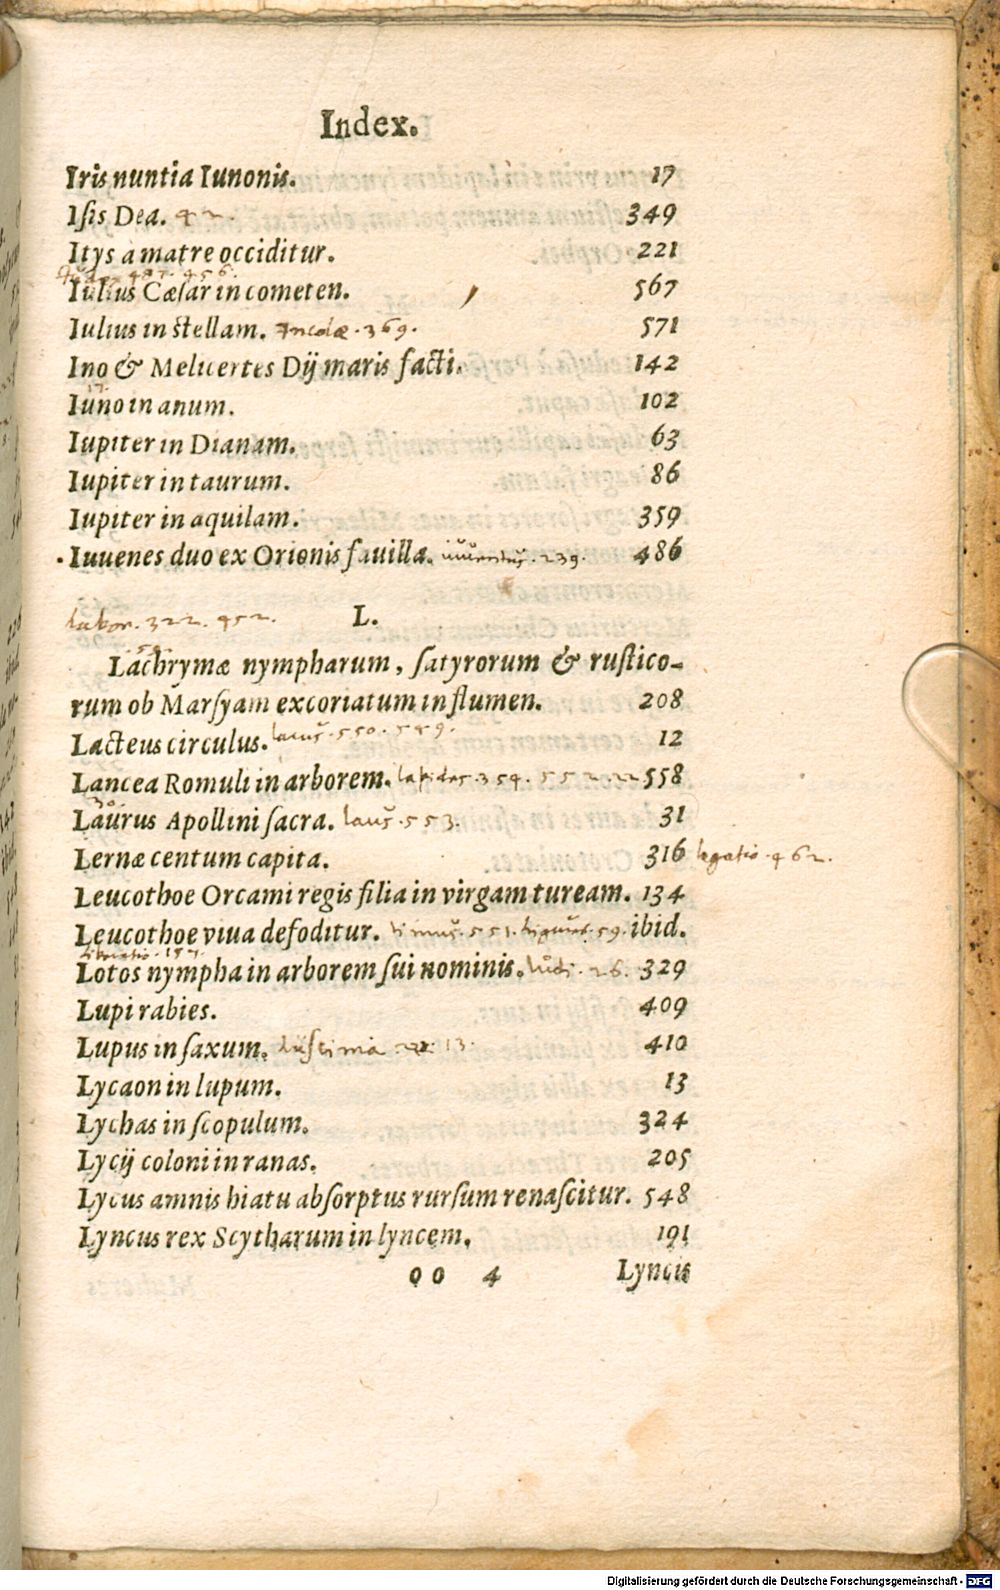 Index.
Iris nuntia Iunonis. 17
Iſis Dea. 42. 349
Itys à matre occiditur. 221
487. 456.
Iulius Cæſar in cometen. 567
Iulius in ſtellam. Incolæ. 369. 571
Ino & Melicertes Dij maris facti. 142
17.
Iuno in anum. 102
Iupiter in Dianam. 63
Iupiter in taurum. 86
Iupiter in aquilam. 359
Iuuenes duo ex Orionis fauilla. 239. 486
labor. 322. 452. L.
Lachrymæ nympharum, ſatyrorum & ruſtico-
rum ob Marſyam excoriatum in flumen. 208
Lacteus circulus. lacus. 550. 549. 12
Lancea Romuli in arborem. lapides. 354. 552. 22 558
30.
Laurus Apollini ſacra. laus. 553. 31
Lernæ centum capita. 316 legatio. 462.
Leucothoe Orcami regis filia in virgam tuream. 134
Leucothoe viua defoditur. limus. 551. 59. ibid.
liberatio. 157.
Lotos nympha in arborem ſui nominis. ludi. 26. 329
Lupi rabies. 409
Lupus in ſaxum. 13. 410
Lycaon in lupum. 13
Lychas in ſcopulum. 324
Lycij coloni in ranas. 205
Lycus amnis hiatu abſorptus rurſum renaſcitur. 548
Lyncus rex Scytharum in lyncem. 191
oo 4 Lyncis
Digitalisierung gefördert durch die Deutsche Forschungsgemeinschaft - DFG